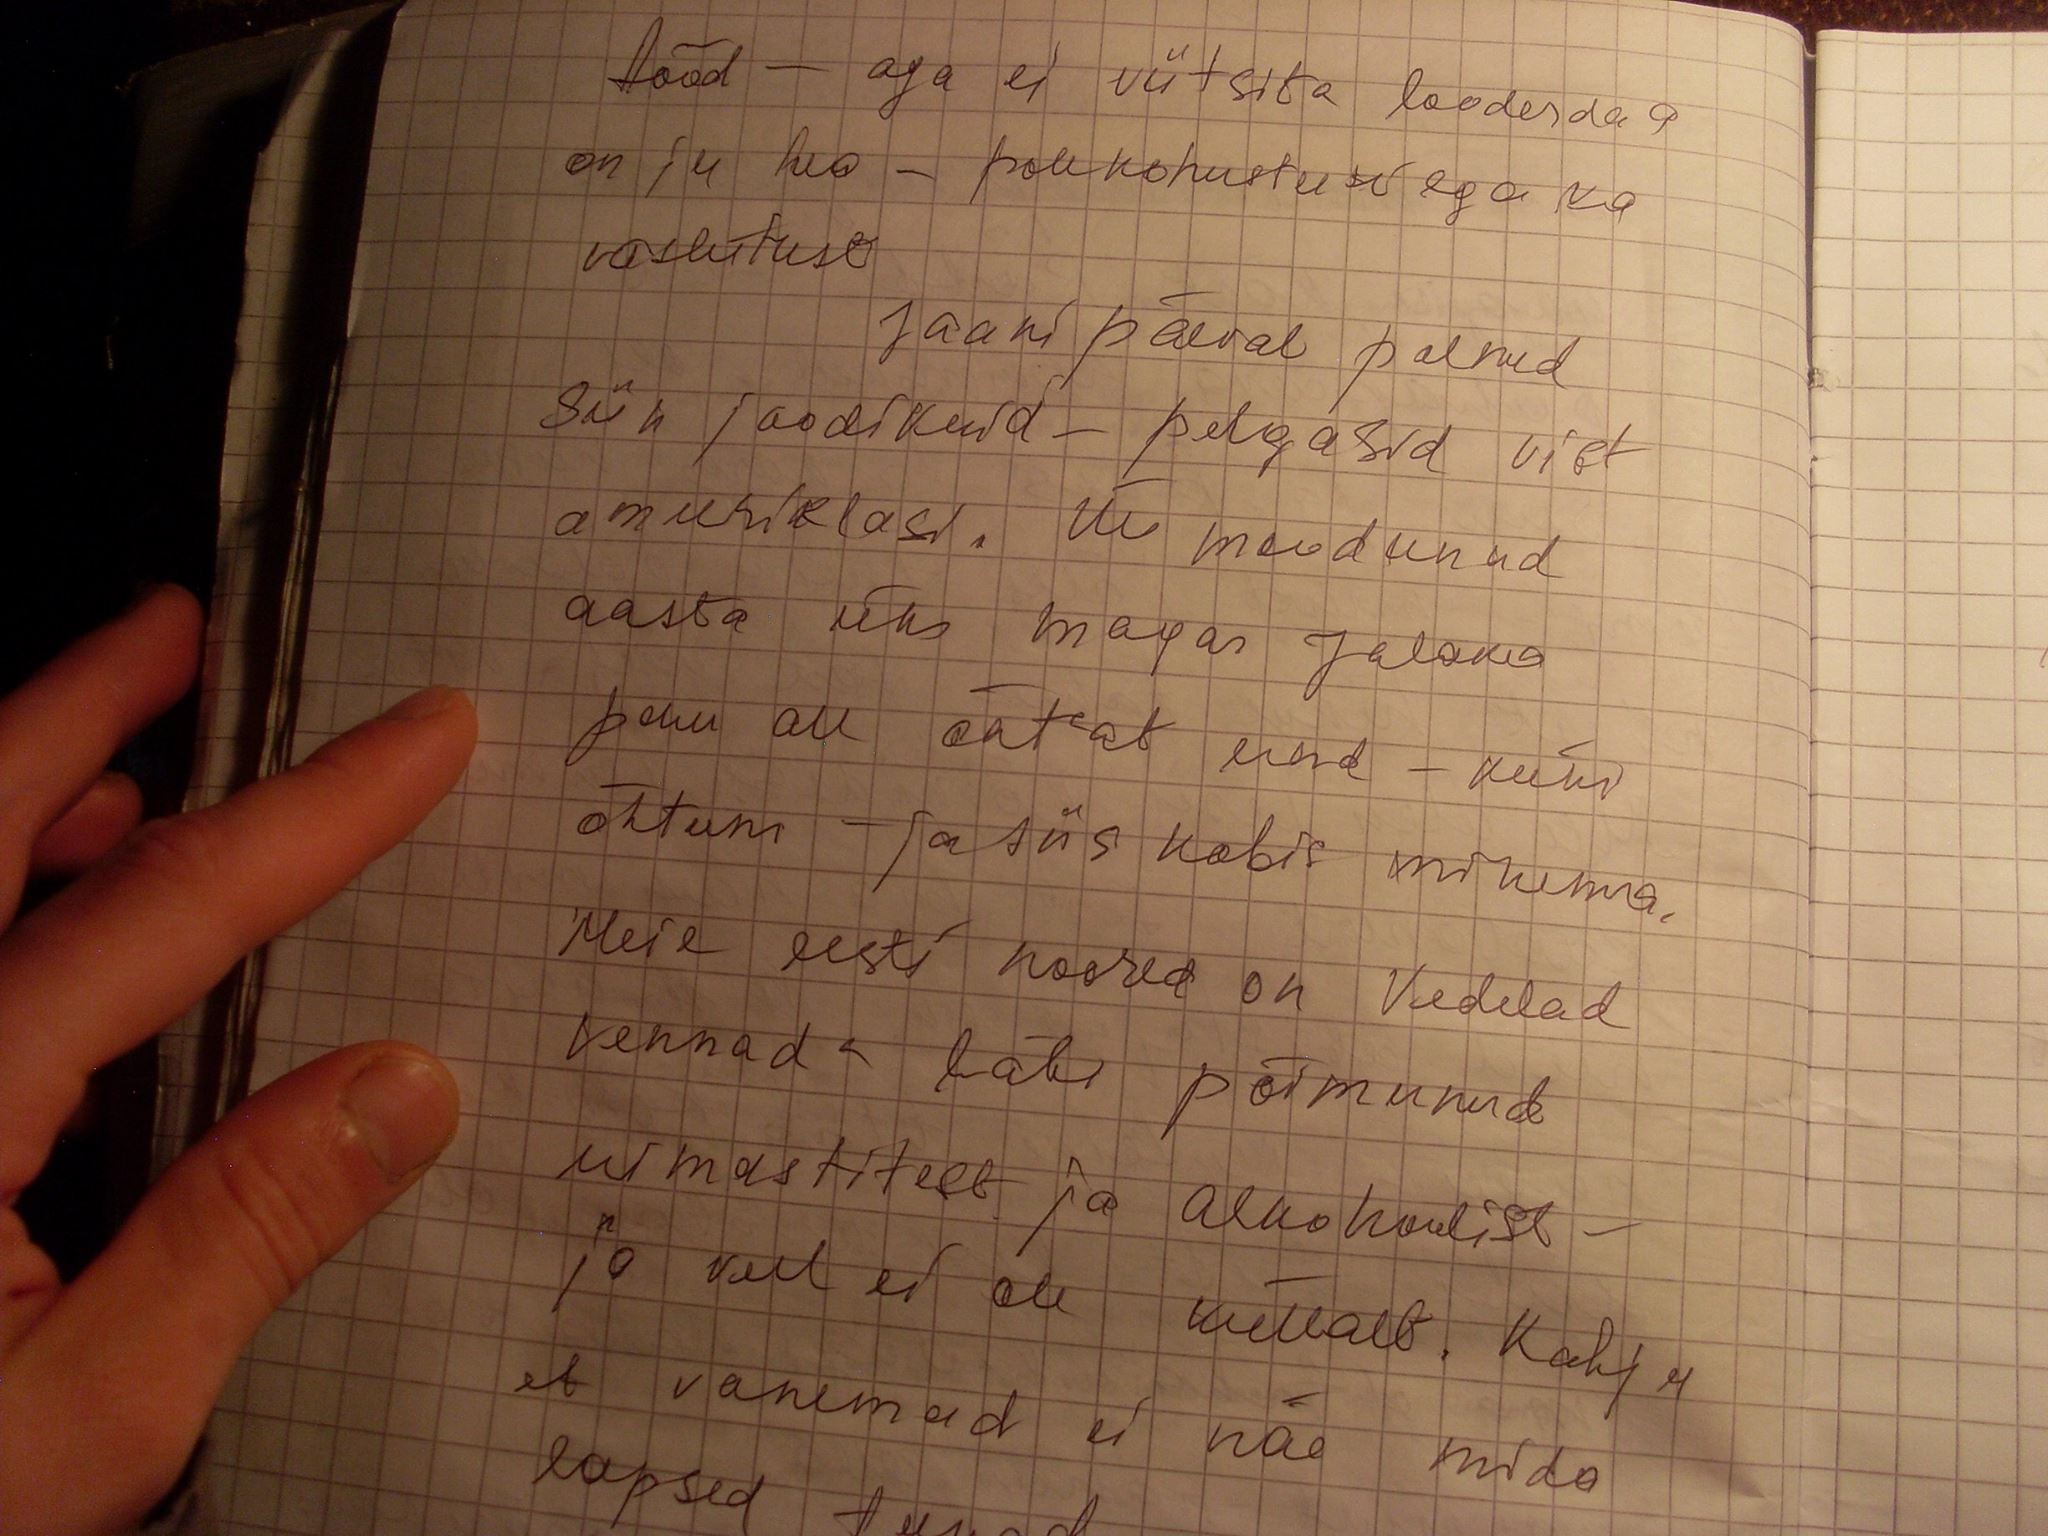 tööd — aga ei viitsita looderdada
on ju hea — pole kohustusi ega ka
vastutust
Jaani päeval polnud
siin joodikuid — pelgasid vist
ameeriklasi. Üle möödunud
aasta üks magas jalaka
puu all õãtkat und — kuni
õhtuni — ja siis kobis minema.
Meie eesti noored on vedelad
vennad - läbi põimunud
uimastitest ja alkoholist —
ja veel ei ole küllalt. Kahju
et vanemad ei näe mida
lapsed teevad